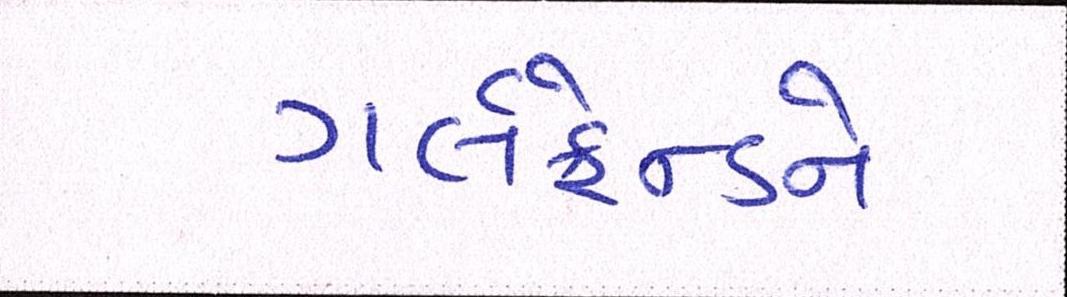 ગર્લફ્રેન્ડને